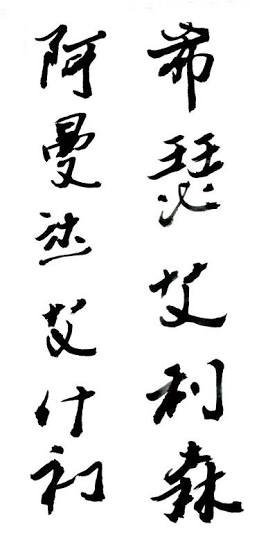 希瑟艾利森
阿曼艾什